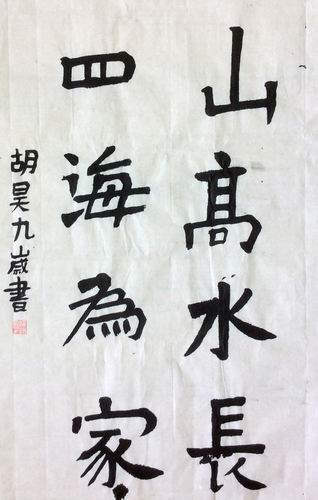 山高水長
四海為家
胡昊九歲書